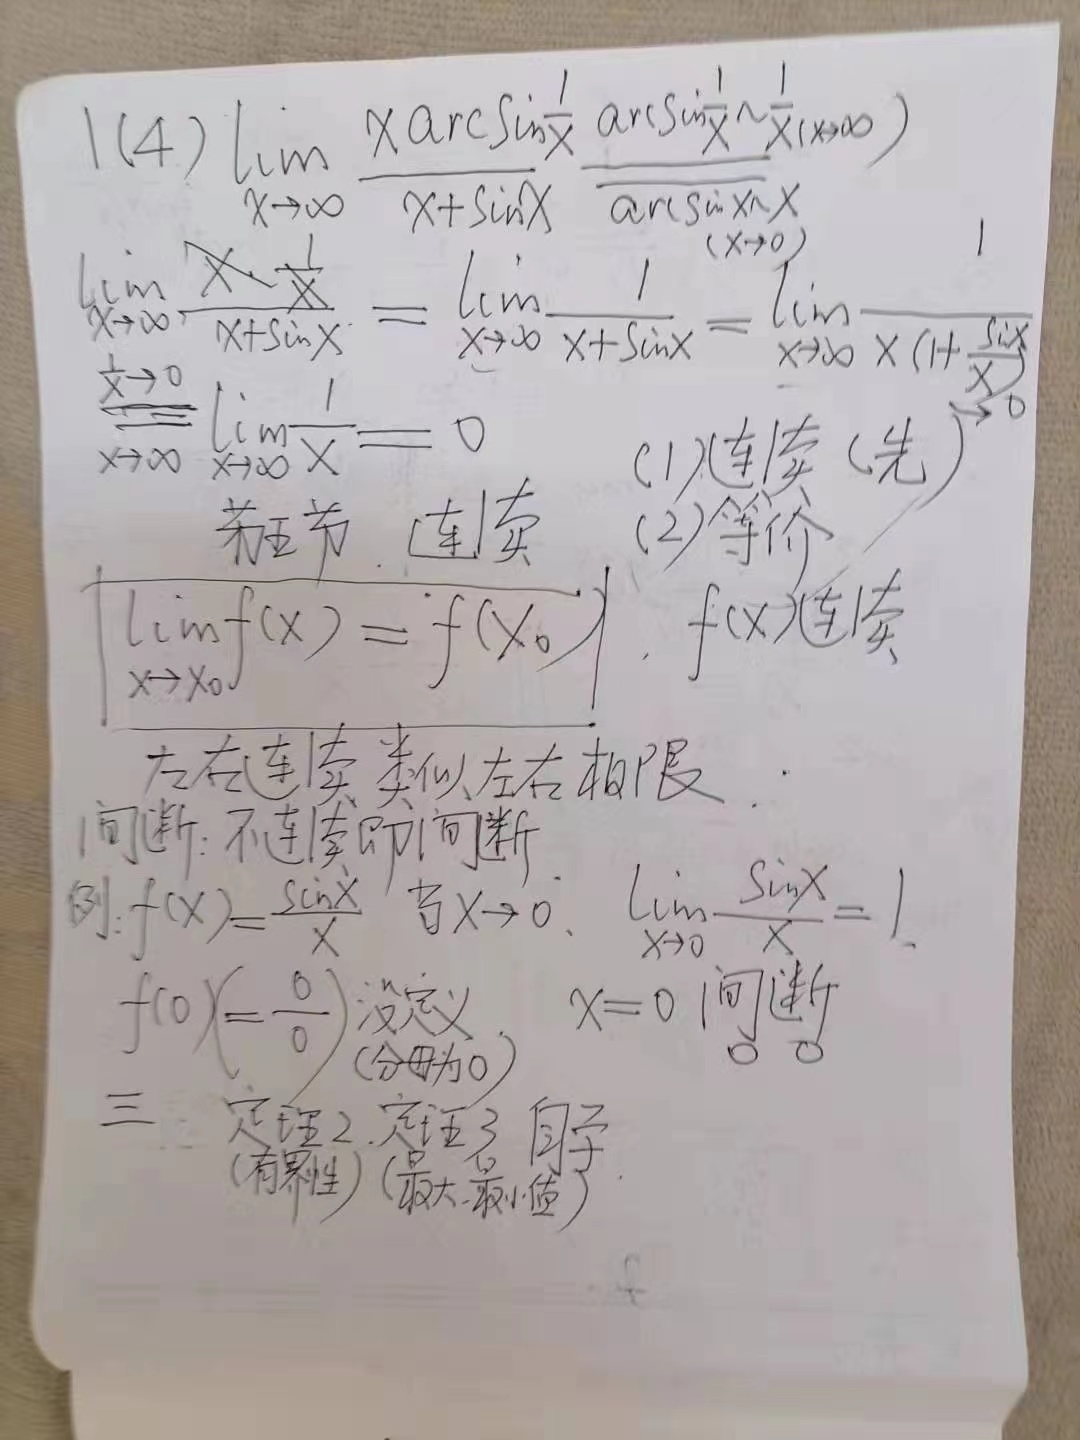 1(4) lim x→∞ (x arcsin 1/x)/(x+sinx) = arcsin 1/x ~ 1/x (x→∞) arcsin x ~ x (x→0)
lim x→∞ (x·1/x)/(x+sinx) = lim x→∞ 1/(x+sinx) = lim x→∞ 1/(x(1+sinx/x)) →0
1/x→0 x→∞ = lim x→∞ 1/x = 0
(1)连续(先)
第五节.连续 (2)等价
lim x→x₀ f(x) = f(x₀). f(x)连续
左右连续类似左右极限.
间断:不连续即间断
例:f(x)=sinx/x 当x→0、lim x→0 sinx/x=1.
f(0)(=0/0)没定义. x=0间断
(分母为0)
三 定理2.定理3 自学
(有界性)(最大.最小值)